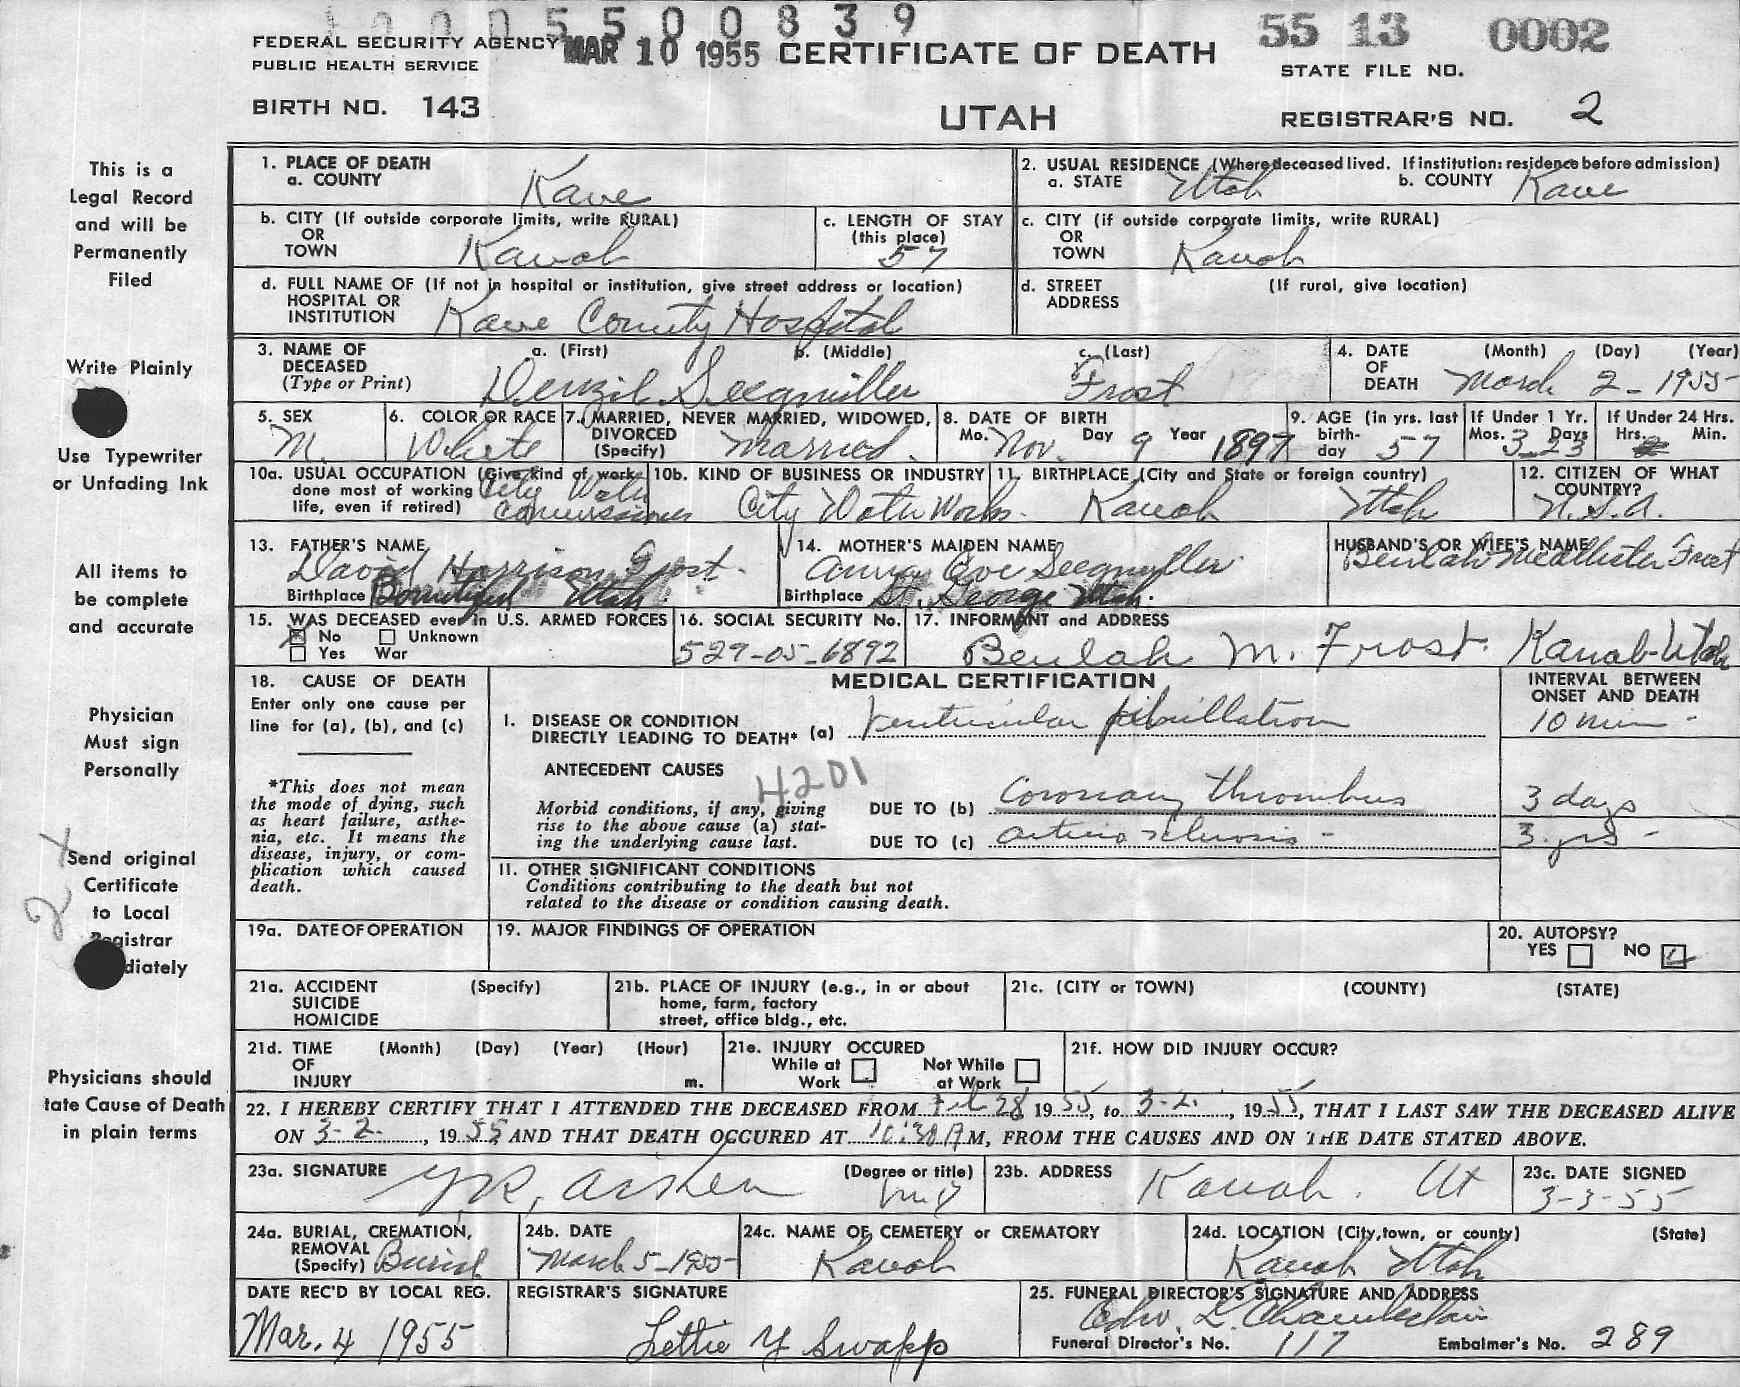 1000 5500839
55 13 0002
FEDERAL SECURITY AGENCY MAR 10 1955 CERTIFICATE OF DEATH
PUBLIC HEALTH SERVICE
STATE FILE NO.
BIRTH NO. 143
UTAH
REGISTRAR'S NO. 2
This is a
Legal Record
and will be
Permanently
Filed
Write Plainly
Use Typewriter
or Unfading Ink
All items to
be complete
and accurate
Physician
Must sign
Personally
Send original
Certificate
to Local
Registrar
diately
Physicians should
tate Cause of Death
in plain terms
1. PLACE OF DEATH
a. COUNTY Kane
2. USUAL RESIDENCE (Where deceased lived. If institution: residence before admission)
a. STATE Utah b. COUNTY Kane
b. CITY (If outside corporate limits, write RURAL)
OR
TOWN Kanab
c. LENGTH OF STAY
(this place)
57
c. CITY (if outside corporate limits, write RURAL)
OR
TOWN Kanab
d. FULL NAME OF (If not in hospital or institution, give street address or location)
HOSPITAL OR
INSTITUTION Kane County Hospital
d. STREET (If rural, give location)
ADDRESS
3. NAME OF a. (First) b. (Middle) c. (Last)
DECEASED
(Type or Print) Denzil Seegmiller Frost
4. DATE (Month) (Day) (Year)
OF
DEATH March 2-1955
5. SEX
M.
6. COLOR OR RACE
White
7. MARRIED, NEVER MARRIED, WIDOWED,
DIVORCED
(Specify) Married
8. DATE OF BIRTH
Mo. Nov. Day 9 Year 1897
9. AGE (in yrs. last
birth-
day 57
If Under 1 Yr.
Mos. 3 Days 23
If Under 24 Hrs.
Hrs. Min.
10a. USUAL OCCUPATION (Give kind of work
done most of working
life, even if retired) City Water
Commissioner
10b. KIND OF BUSINESS OR INDUSTRY
City Water Works.
11. BIRTHPLACE (City and State or foreign country)
Kanab Utah
12. CITIZEN OF WHAT
COUNTRY?
U.S.A.
13. FATHER'S NAME
David Harrison Frost.
Birthplace Bountiful Utah.
14. MOTHER'S MAIDEN NAME
Eve Seegmiller
Birthplace St. George Utah.
HUSBAND'S OR WIFE'S NAME
Beulah McAllister Frost
15. WAS DECEASED ever in U.S. ARMED FORCES
No Unknown
Yes War
16. SOCIAL SECURITY No.
529-05-6892
17. INFORMANT and ADDRESS
Beulah M. Frost. Kanab-Utah
18. CAUSE OF DEATH
Enter only one cause per
line for (a), (b), and (c)
*This does not mean
the mode of dying, such
as heart failure, asthe-
nia, etc. It means the
disease, injury, or com-
plication which caused
death.
MEDICAL CERTIFICATION
INTERVAL BETWEEN
ONSET AND DEATH
I. DISEASE OR CONDITION
DIRECTLY LEADING TO DEATH* (a) Ventricular fibrillation 10 min -
ANTECEDENT CAUSES 4201
Morbid conditions, if any, giving
rise to the above cause (a) stat-
ing the underlying cause last.
DUE TO (b) Coronary thrombus 3 days
DUE TO (c) arterio sclerosis - 3 yrs -
II. OTHER SIGNIFICANT CONDITIONS
Conditions contributing to the death but not
related to the disease or condition causing death.
19a. DATE OF OPERATION
19. MAJOR FINDINGS OF OPERATION
20. AUTOPSY?
YES NO
21a. ACCIDENT (Specify)
SUICIDE
HOMICIDE
21b. PLACE OF INJURY (e.g., in or about
home, farm, factory
street, office bldg., etc.
21c. (CITY or TOWN) (COUNTY) (STATE)
21d. TIME (Month) (Day) (Year) (Hour)
OF
INJURY m.
21e. INJURY OCCURED
While at Work Not While at Work
21f. HOW DID INJURY OCCUR?
22. I HEREBY CERTIFY THAT I ATTENDED THE DECEASED FROM Feb 28 1955, to 3-2, 1955, THAT I LAST SAW THE DECEASED ALIVE
ON 3-2, 1955 AND THAT DEATH OCCURED AT 10:30 A M, FROM THE CAUSES AND ON THE DATE STATED ABOVE.
23a. SIGNATURE (Degree or title)
Aiken MD
23b. ADDRESS
Kanab. Ut
23c. DATE SIGNED
3-3-55
24a. BURIAL, CREMATION,
REMOVAL
(Specify) Burial
24b. DATE
March 5-1955
24c. NAME OF CEMETERY or CREMATORY
Kanab
24d. LOCATION (City, town, or county) (State)
Kanab Utah
DATE REC'D BY LOCAL REG.
Mar. 4 1955
REGISTRAR'S SIGNATURE
Lettie Y Swapp
25. FUNERAL DIRECTOR'S SIGNATURE AND ADDRESS
Edw. L. Chamberlain
Funeral Director's No. 117 Embalmer's No. 289